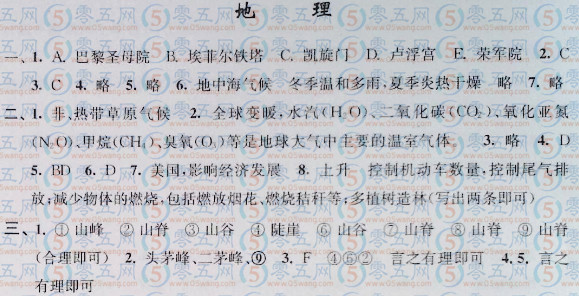 地 理
一、1. A. 巴黎圣母院 B. 埃菲尔铁塔 C. 凯旋门 D. 卢浮宫 E. 荣军院 2. C
3. C 4. 略 5. 略 6. 地中海气候 冬季温和多雨,夏季炎热干燥 略 7. 略
二、1. 非,热带草原气候 2. 全球变暖,水汽(H₂O)、二氧化碳(CO₂)、氧化亚氮
(N₂O)、甲烷(CH₄)、臭氧(O₃)等是地球大气中主要的温室气体。 3. 略 4. D
5. BD 6. D 7. 美国,影响经济发展 8. 上升 控制机动车数量,控制尾气排
放;减少物体的燃烧,包括燃放烟花、燃烧秸秆等;多植树造林(写出两条即可)
三、1. ①山峰 ②山脊 ③山谷 ④陡崖 ⑤山谷 ⑥山脊 ⑦山脊 ⑧山脊 ⑨山脊
(合理即可) 2. 头茅峰、二茅峰、⑨ 3. F ④⑥② 言之有理即可 4.5. 言之
有理即可